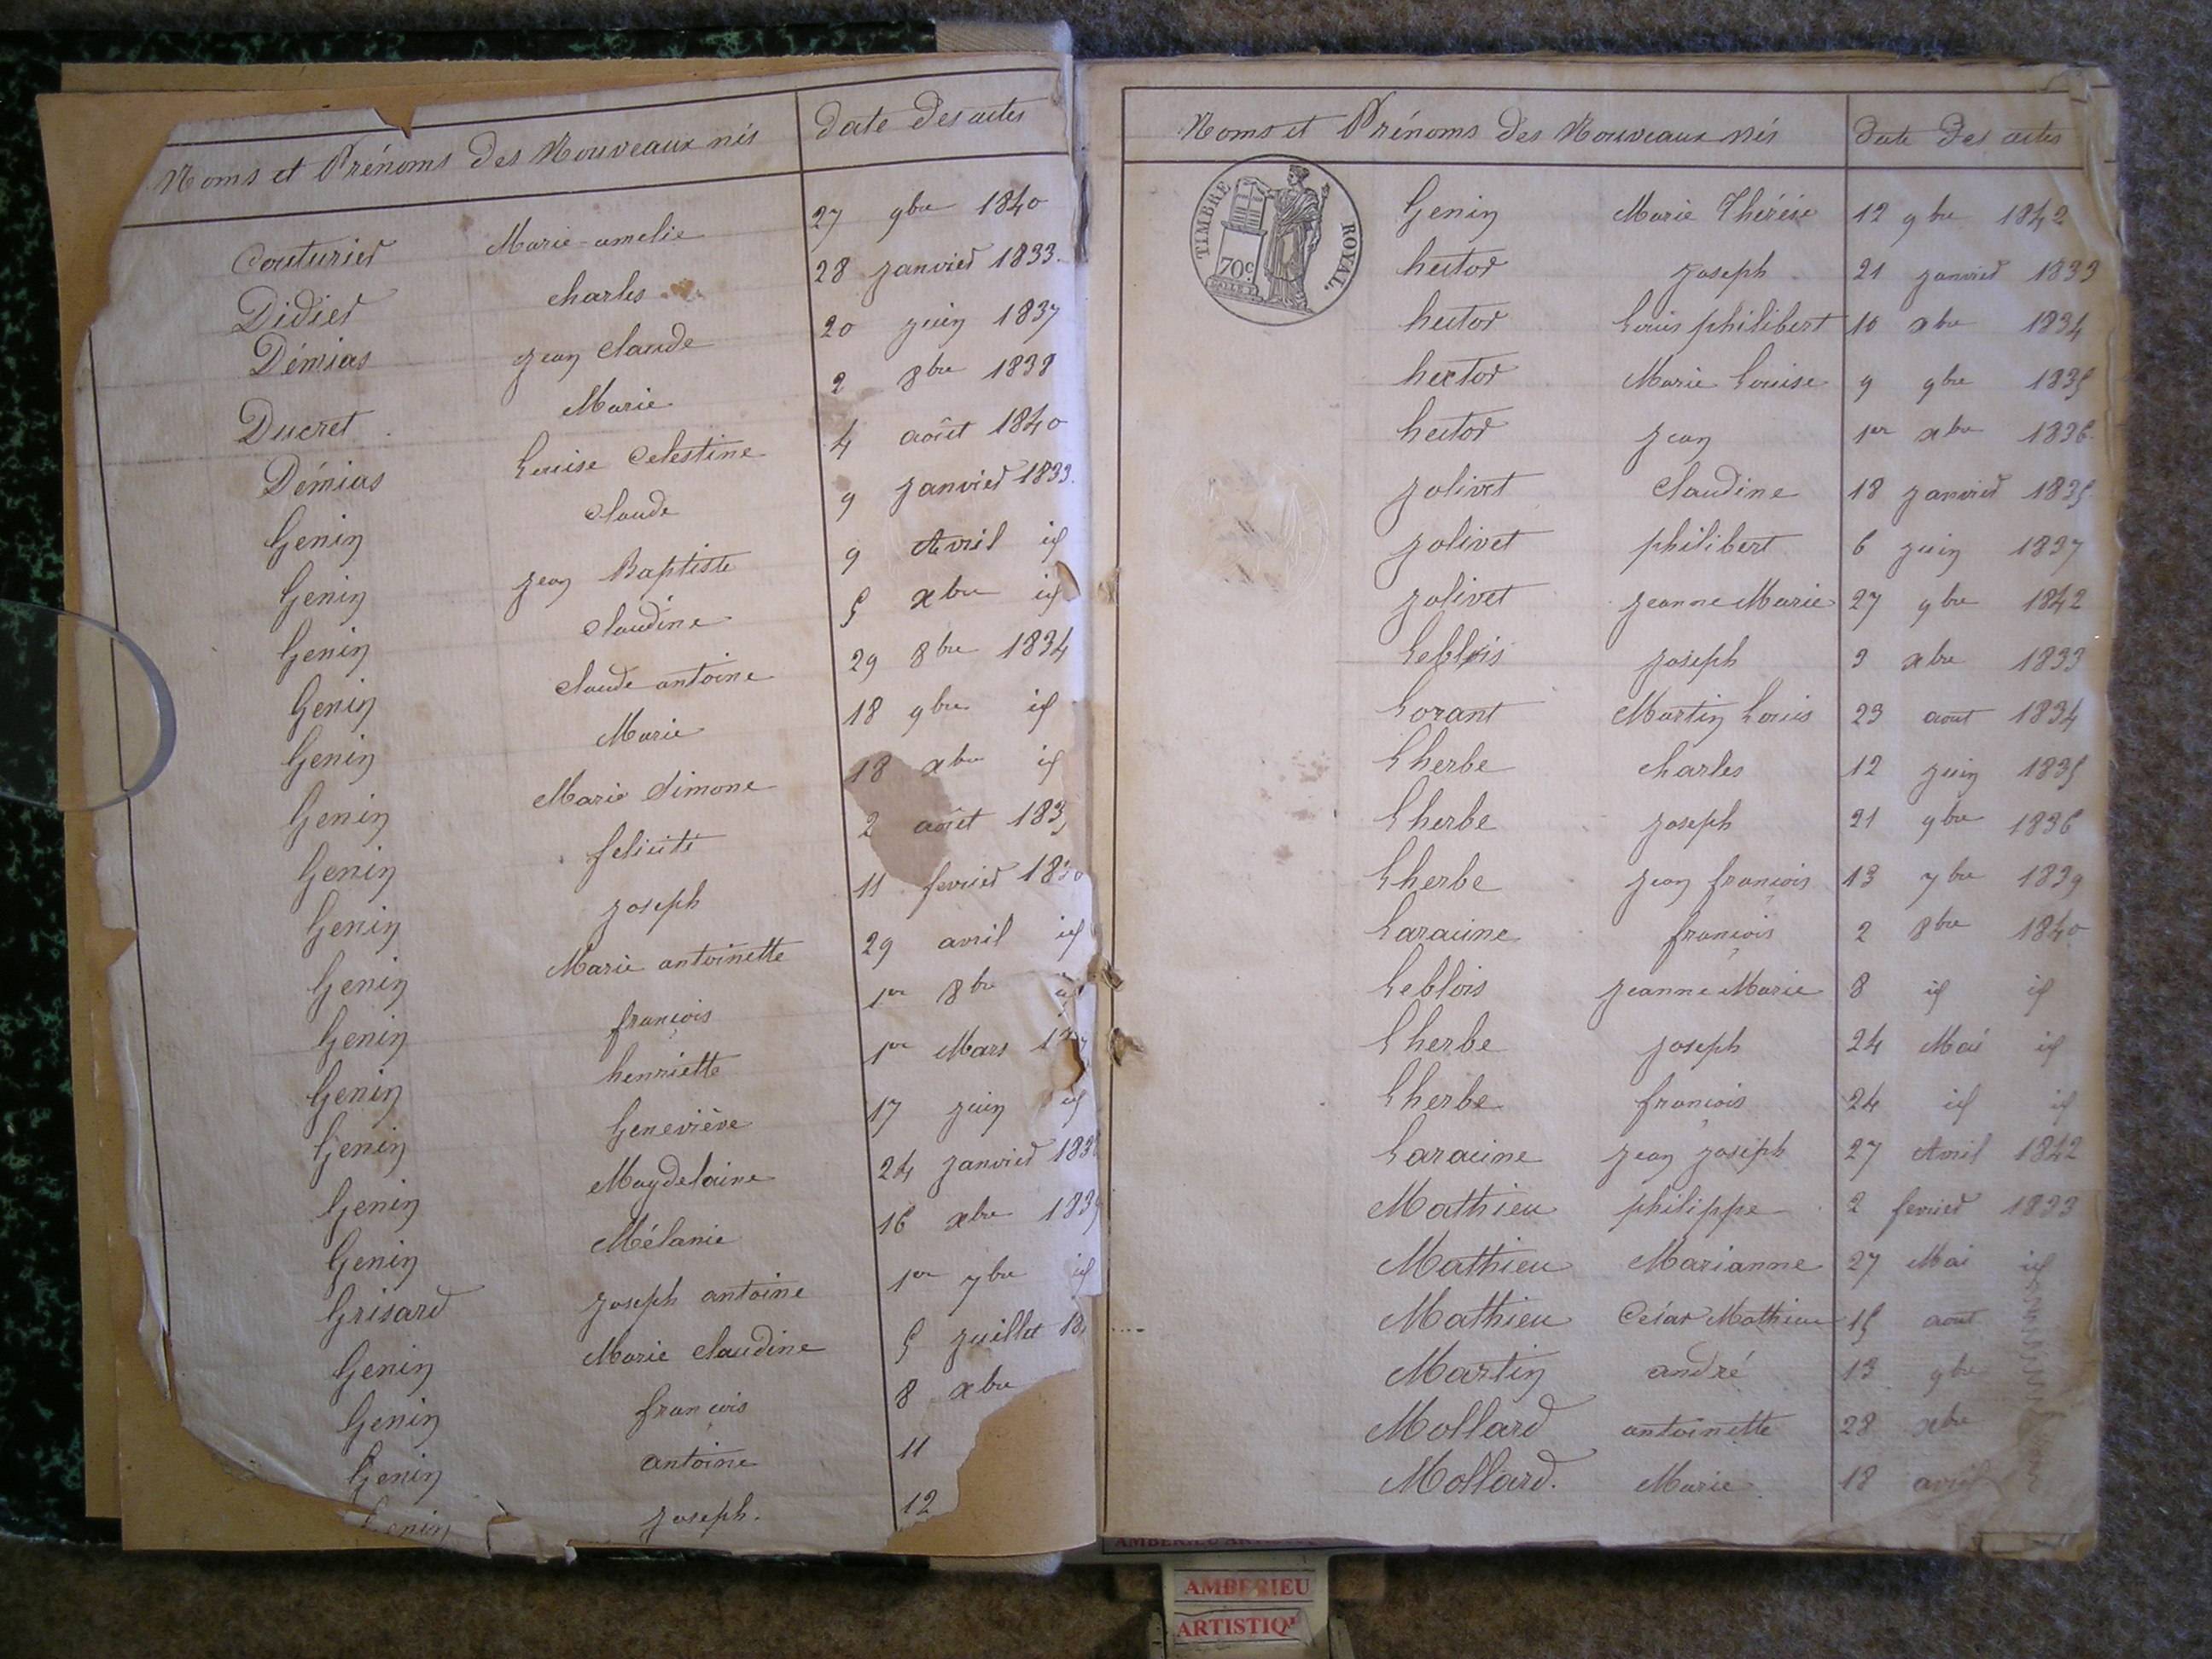 Noms et Prénoms des Nouveaux nés date des actes
Couturier Marie-amelie 27 9bre 1840
Didier charles 28 janvier 1833
Démias jean claude 20 juin 1837
Ducret Marie 2 8bre 1838
Démias Louise Celestine 4 août 1840
Genin claude 9 janvier 1833
Genin jean Baptiste 9 Avril id
Genin claudine 5 xbre id
Genin claude antoine 29 8bre 1834
Genin Marie 18 9bre id
Genin Marie Simone 18 xbre id
Genin felicité 2 août 183
Genin joseph 11 fevrier
Genin Marie antoinette 29 avril id
Genin françois 1er 8bre id
Genin henriette 1er Mars
Genin Geneviève 17 juin id
Genin Magdelaine 24 janvier 183
Genin Mélanie 16 xbre 183
Grisard joseph antoine 1er 7bre id
Genin Marie claudine 5 juillet
Genin françois 8 xbre
Genin antoine 11
Genin joseph. 12
Noms et Prénoms des Nouveaux nés date des actes
TIMBRE ROYAL.
70c.
Genin Marie Thérèse 12 9bre 1842
hector joseph 21 janvier 1833
hector Louis philibert 10 xbre 1834
hector Marie Louise 9 9bre 1835
hector jean 1er xbre 1836
jolivet claudine 18 janvier 1835
jolivet philibert 6 juin 1837
jolivet jeanne Marie 27 9bre 1842
Leblois joseph 3 xbre 1833
Lorant Martin Louis 23 aout 1834
Lherbe charles 12 juin 1835
Lherbe joseph 21 9bre 1836
Lherbe jean françois 13 7bre 1839
Laracine françois 2 8bre 1840
Leblois jeanne Marie 8 id id
Lherbe joseph 24 Mai id
Lherbe françois 24 id id
Laracine jean joseph 27 Avril 1842
Mathieu philippe 2 fevrier 1833
Mathieu Marianne 27 Mai id
Mathieu César Mathieu 15 aout
Martin andré 13 9bre
Mollard antoinette 28 xbre
Mollard. Marie 18 avril
AMBERIEU
ARTISTIQ